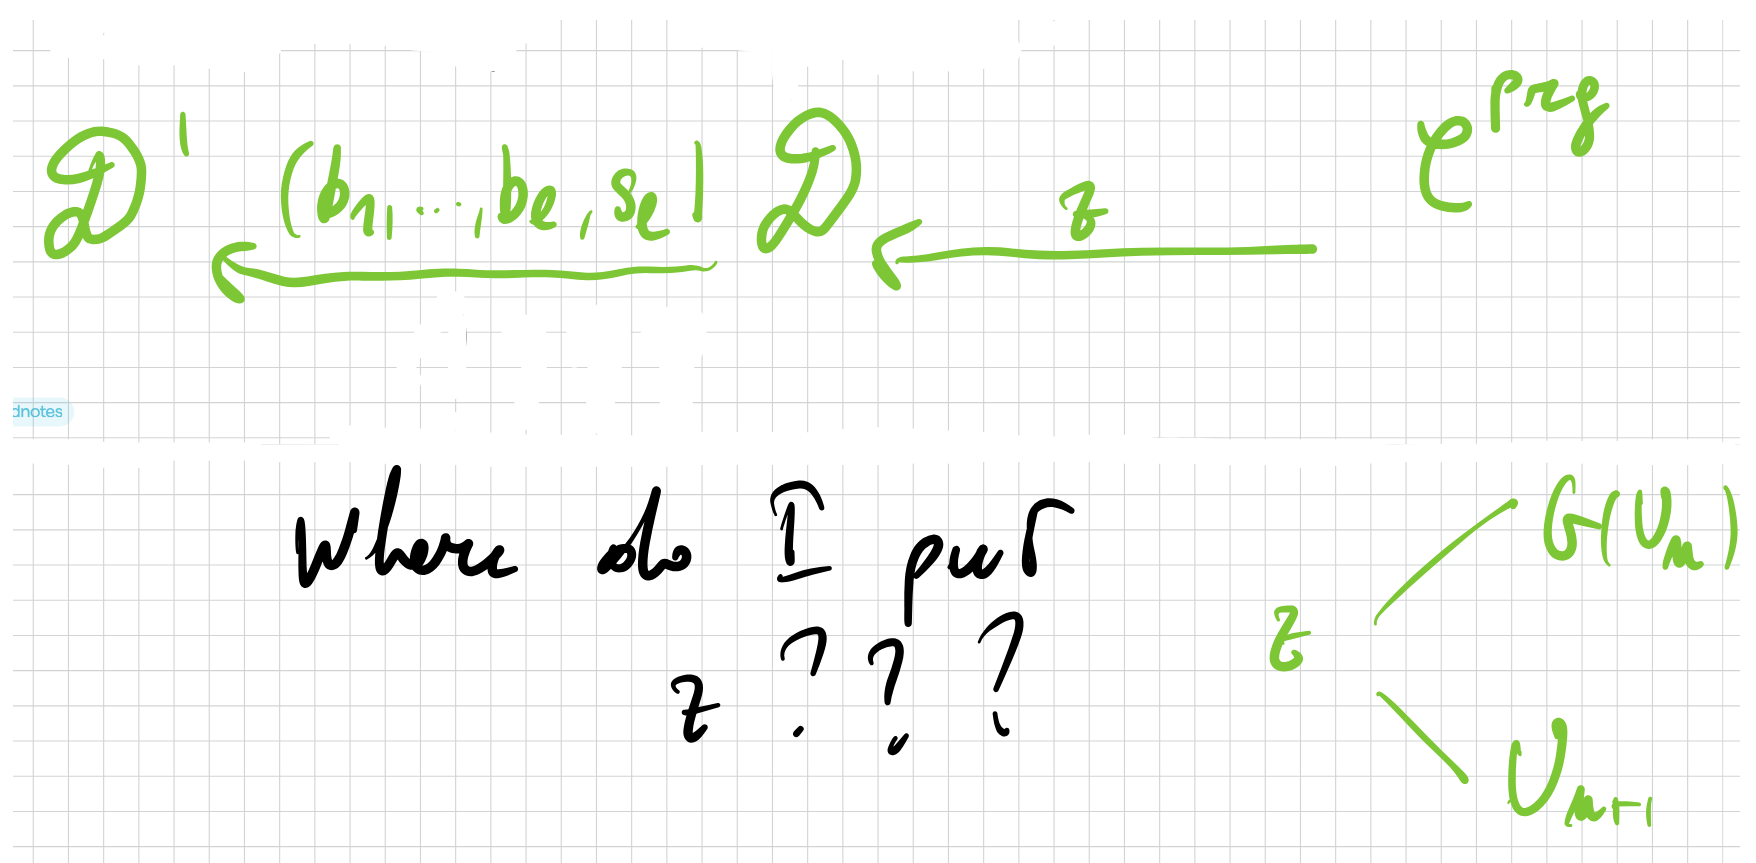 D' (b₁, ..., bℓ, sℓ) D z C^prg
dnotes
Where do I put
z ? ? ?
z G(Uₘ)
Uₘ₊₁